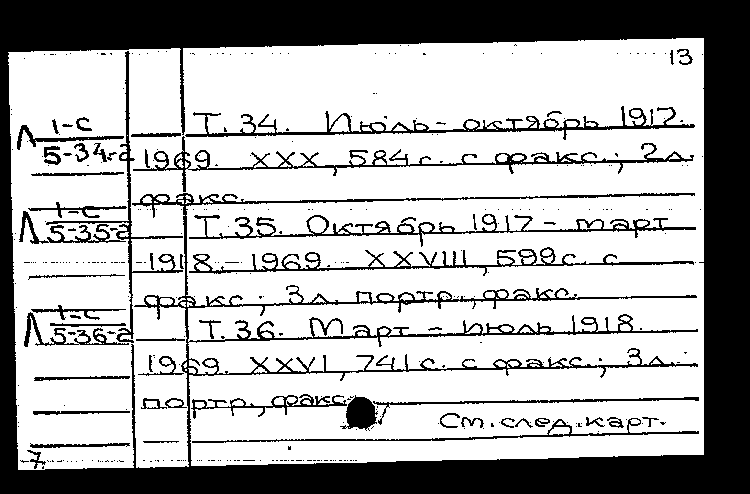 13
Л 1-С
5-34-а
Т. 34. Июль - октябрь 1917.
1969. XXX, 584 с. с факс.; 2 л.
факс.
Л 1-С
5-35-а
Т. 35. Октябрь 1917 - март
1918. - 1969. XXVIII, 599 с. с
факс; 3 л. портр., факс.
Л 1-С
5-36-а
Т. 36. Март - июль 1918.
1969. XXVI, 741 с. с факс.; 3 л.
портр., факс
См. след. карт.
7